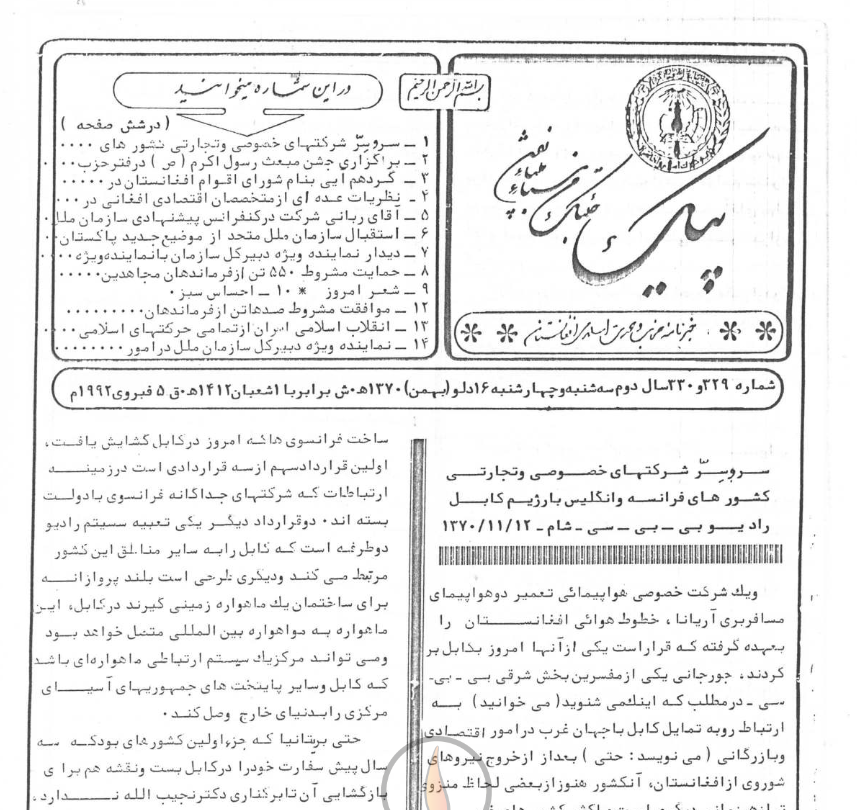 بسم الله الرحمن الرحیم
پیک
خبرنامه حزب وحدت اسلامی افغانستان
در این شماره میخوانید
( درشش صفحه )
۱ ـ سروسرّ شرکتهای خصوصی وتجارتی کشور های ۰۰۰۰
۲ ـ برگزاری جشن مبعث رسول اکرم ( ص ) دردفترحزب۰۰۰
۳ ـ گردهم ایی بنام شورای اقوام افغانستان در ۰۰۰۰۰
۴ ـ نظریات عده ای ازمتخصصان اقتصادی افغانی در ۰۰۰
۵ ـ آقای ربانی شرکت درکنفرانس پیشنهادی سازمان ملل۰
۶ ـ استقبال سازمان ملل متحد از موضع جدید پاکستان۰۰
۷ ـ دیدار نماینده ویژه دبیرکل سازمان بانماینده‌ویژه۰۰۰۰
۸ ـ حمایت مشروط ۵۵۰ تن ازفرماندهان مجاهدین۰۰۰۰۰
۹ ـ شعر امروز * ۱۰ ـ احساس سبز۰
۱۲ ـ موافقت مشروط صدهاتن ازفرماندهان۰۰۰۰۰۰۰۰۰
۱۳ ـ انقلاب اسلامی ایران ازتمامی حرکتهای اسلامی۰۰۰۰
۱۴ ـ نماینده ویژه دبیرکل سازمان ملل درامور ۰۰۰۰۰۰۰۰
شماره ۳۲۹و ۳۳۰سال دوم‌سه‌شنبه‌وچهارشنبه‌۱۶دلو(بهمن) ۱۳۷۰ه‌۰ش برابربا ۱شعبان۱۴۱۲ه‌۰ق ۵ فبروی۱۹۹۲م
ســروسـرّ شـرکتهـای خصــوصی وتجـارتـی
کشــور هـای‌فـرانسـه وانگلیس بـارژیـم کـابــل
رادیــو بـی ـ بـی ـ سـی ـ شام ـ ۱۳۷۰/۱۱/۱۲
ویک شرکت خصوصی هواپیمائی تعمیر دوهواپیمای
مسافربری آریانا ، خطوط هوائی افغانســتان را
بعهده گرفته کـه قراراست یکی ازآنهـا امروز بکابل‌بر
گردند ، جورجانی یکی ازمفسرین بخش شرقی بـی ـ بی‌ـ
سـی ـ درمطلب کـه اینک‌می شنوید( می خوانید ) بــه
ارتباط روبه تمایل کابل باجهان غرب درامور اقتصـادی
وبازرگانی ( می نویسد : حتی ) بعداز ازخروج نیروهای
شوروی ازافغانستان، آنکشور هنوزازبعضی لحاظ منزوی
ساخت فرانسوی هاکه امروز درکابل کشایش یافـت ،
اولین قراردادسهم ازسه قراردادی است درزمینــه
ارتباطات کـه شرکتهای جداگانه فرانسوی بادولـت
بسته اند۰ دوقرارداد دیگـر یکی تعبیه سیستم رادیو
دوطرفـه است کـه کابل رابـه سایر مناطق این کشور
مرتبط مـی کنـد ودیگری طرحی است بلند پروازانـــه
برای ساختمان یک ماهواره زمینی گیرند درکابل، ایـن
ماهواره بـه مواهواره بین المللی متصل خواهد بـود
ومـی توانـد مرکزیک سیسـتم ارتباطی ماهواره‌ای باشد
کـه کابل وسایر پایتخت های جمهوریهای آسیــــای
مرکزی رابـدنیای خارج وصل کنـد۰
حتی برتانیا کـه جزءاولین کشور های بودکـه سه
سال پیش سفارت خودرا درکابل بست ونقشه هم برا ی
بازگشایی آن تابرکناری دکترنجیب الله نـــدارد،